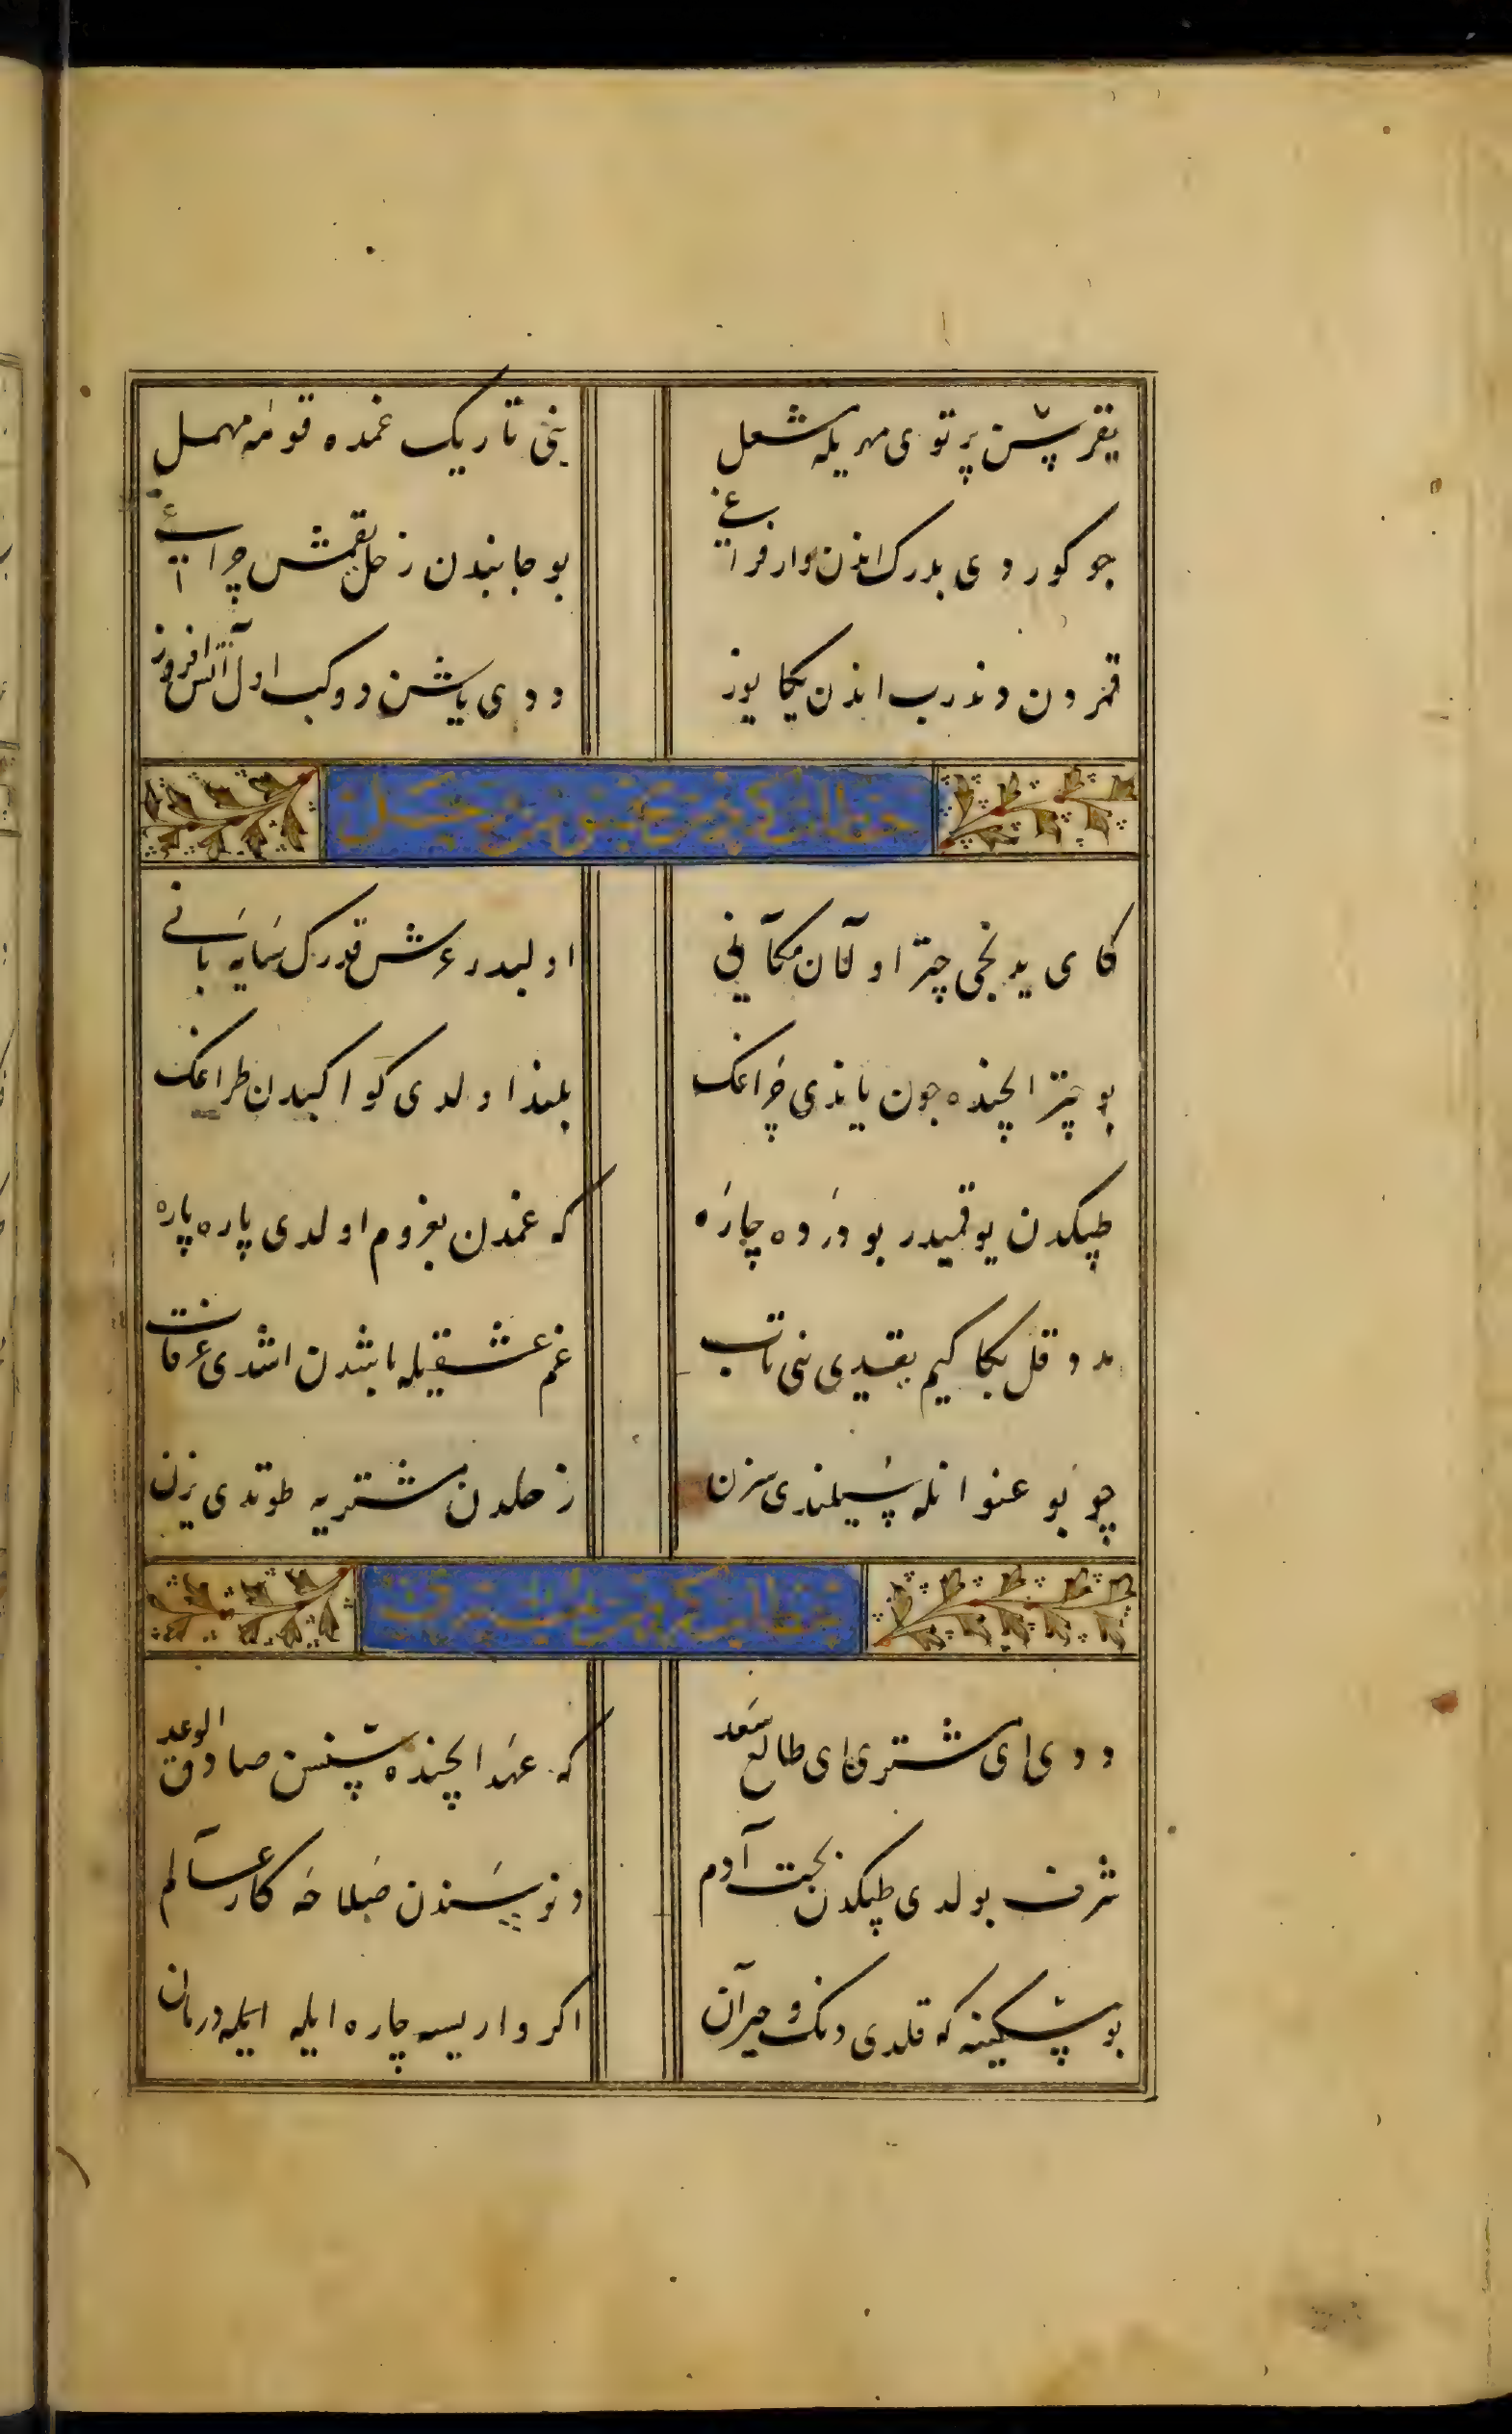 يقرسن پرتوی مهريله مشعل بنی تاریک غمده قومه مهمل
چو کوردی بدرک اندن وار فراغی بو جانبدن زحل یقمش چراغی
قمردن دوندرب اندن یکا یوز ددی یاشن دوکب اول آتش افروز
کای یدنجی چتر اولان مکانی اولبدر عرش قدرک سایه بانی
بو چتر ایچنده چون یاندی چراغک بلند اولدی کواکبدن طراغک
طپکدن یوقمیدر بو درده چاره که غمدن بغروم اولدی پاره پاره
مدد قل بکا کیم یقدی بنی تاب غم عشقیله باشدن اشدی غرقاب
چو بو عنوانله سیلندی سزن زحلدن مشتریه طوتدی یزن
ددی ای مشتری ای طالع سعد که عهد ایچنده سنسن صادق الوعد
شرف بولدی طپکدن بخت آدم دوزیسندن صلاحه کار عالم
بو مسکینه که قلدی دنک و حیران اکر واریسه چاره ایله ایله درمان